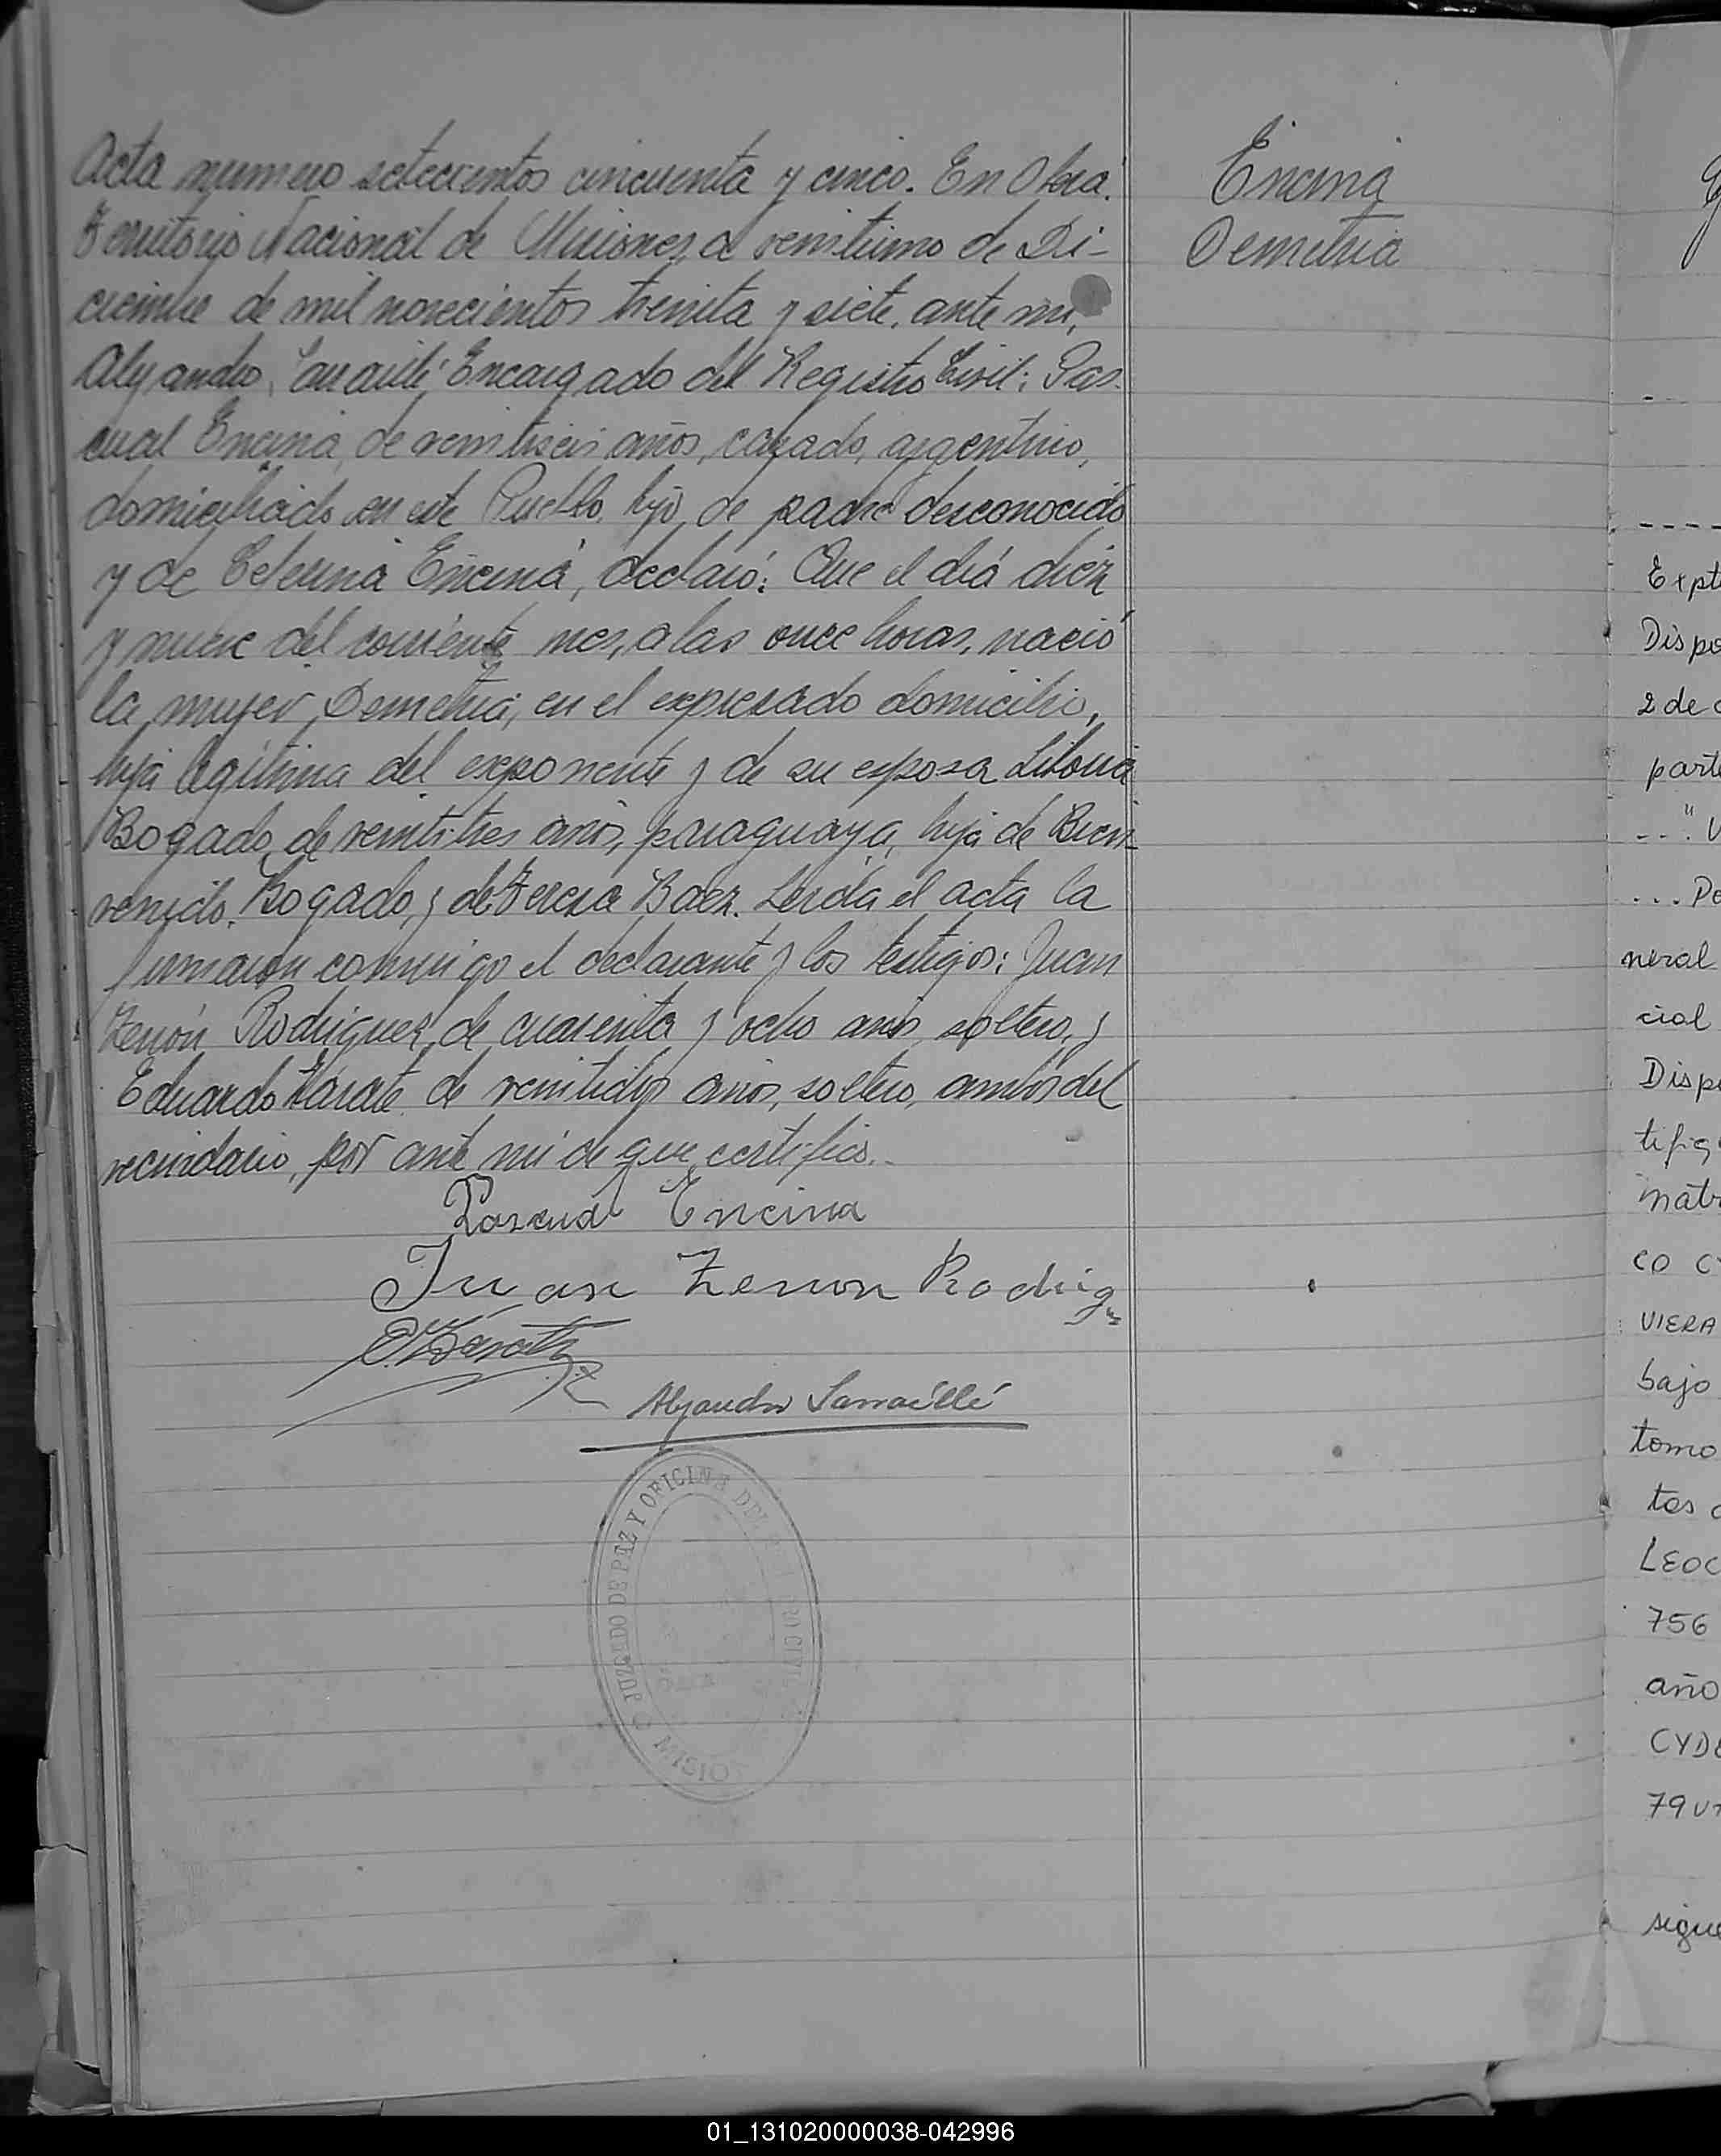 Acta numero setecientos cincuenta y cinco. En Oberá.
Territorio Nacional de Misiones, a veintiuno de Di-
ciembre de mil novecientos treinta y siete, ante mi,
Alejandro Sarraillé Encargado del Registro Civil: Pas-
cual Encina, de veintiseis años, casado, argentino,
domiciliado en este Pueblo, hijo de padre desconocido
y de Ceferina Encina, declaró: Que el día diez
y nueve del corriente mes, a las once horas, nació
la mujer Demetria, en el expresado domicilio,
hija legítima del exponente y de su esposa Liboria
Bogado, de veintitres años, paraguaya, hija de Bien-
venido Bogado, y de Teresa Baez. Leida el acta la
firmaron conmigo el declarante y los testigos: Juan
Zenón Rodriguez, de cuarenta y ocho años, soltero, y
Eduardo Zárate de veintidos años, soltero, ambos del
vecindario, por ante mi de que certifico.
Pascual Encina
Juan Zenon Rodrig
E. Zarate
Alejandro Sarraillé
JUZGADO DE PAZ Y OFICINA DEL CIVIL
MISIO
Encina
Demetria
Expt
Dispo
2 de
parte
neral
cial
Disp
tifiq
matr
co
VIERA
bajo
tomo
tos
LEOC
756
año
CYDE
79
sigue
01_131020000038-042996